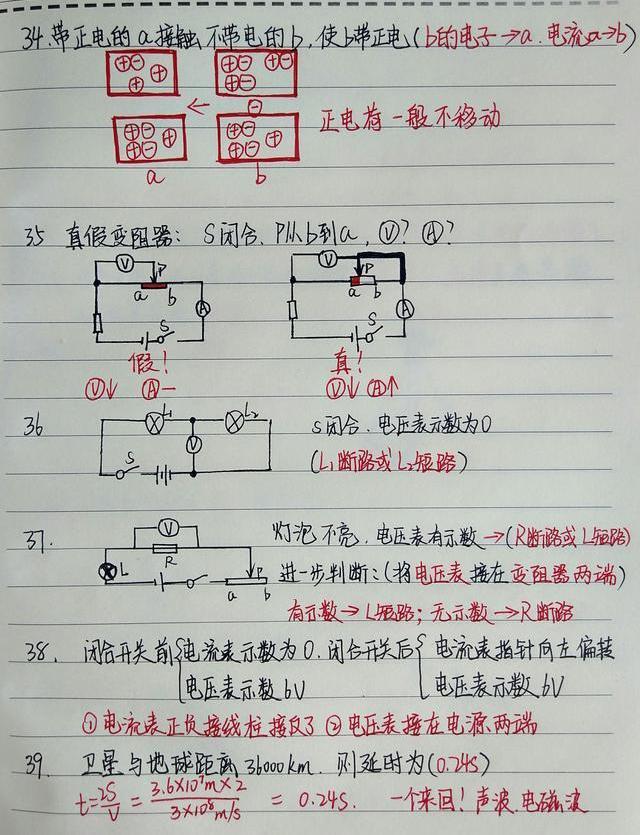 34.带正电的a接触不带电的b,使b带正电(b的电子→a.电流a→b)
⊕⊖ ⊕ ⊕
⊕⊖ ⊕⊖ ⊕⊖
←
⊖
正电荷一般不移动
⊕⊖ ⊕⊖ ⊕
⊕⊖ ⊕⊖ ⊕
a b
35 真假变阻器: S闭合、P从b到a, Ⓥ? Ⓐ?
V P a b A S
V P a b A S
假! 真!
Ⓥ↓ Ⓐ— Ⓥ↓ Ⓐ↑
36
L₁ L₂ V S
S闭合.电压表示数为0
(L₁断路或L₂短路)
37.
V R L P a b
灯泡不亮.电压表有示数→(R断路或L短路)
进一步判断:(将电压表接在变阻器两端)
有示数→L短路;无示数→R断路
38. 闭合开关前{电流表示数为0.闭合开关后{电流表指针向左偏转
电压表示数6V 电压表示数6V
①电流表正负接线柱接反了 ②电压表接在电源两端
39. 卫星与地球距离36000km. 则延时为(0.24s)
t=2S/V=3.6×10⁷m×2/3×10⁸m/s = 0.24s. 一个来回!声波.电磁波